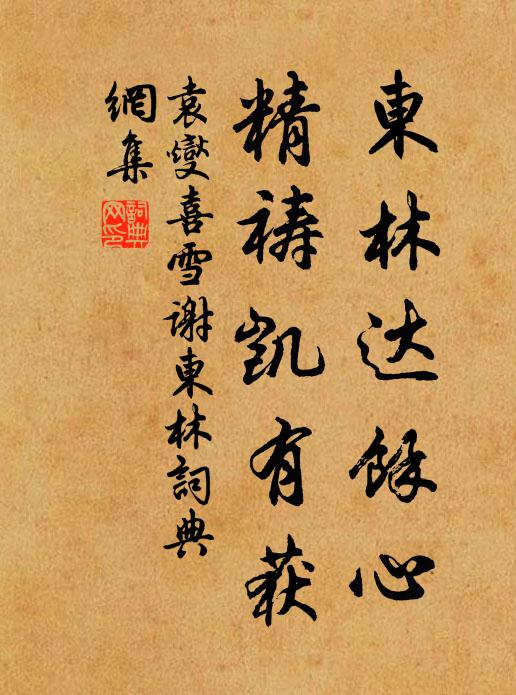 東林达餘心
精祷凯有获
袁燮喜雪谢東林詞典
網集
詞典
网印